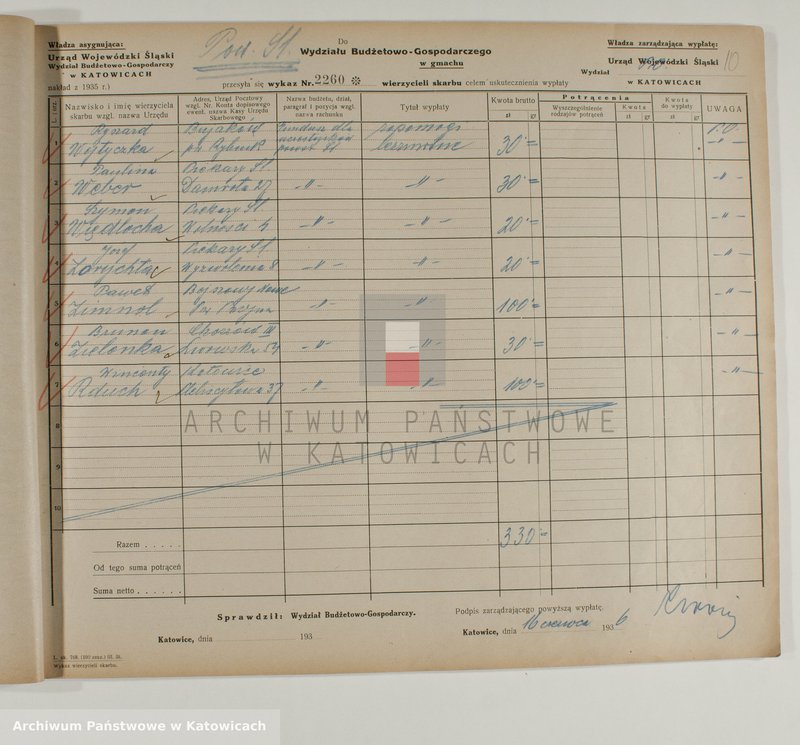 Władza asygnująca:
Urząd Wojewódzki Śląski
Wydział Budżetowo-Gospodarczy
w KATOWICACH
nakład z 1935 r.)
Do
Wydziału Budżetowo-Gospodarczego
w gmachu
przesyła się wykaz Nr. 2260 wierzycieli skarbu celem uskutecznienia wypłaty
Władza zarządzająca wypłatę:
Urząd Wojewódzki Śląski
Wydział
w KATOWICACH
10
L. porz.
Nazwisko i imię wierzyciela
skarbu wzgl. nazwa Urzędu
Adres, Urząd Pocztowy
wzgl. Nr. Konta
ewent. nazwa Kasy Urzędu
Skarbowego
Nazwa budżetu, dział,
paragraf i pozycja wzgl.
nazwa rachunku
Tytuł wypłaty
Kwota brutto
zł gr
Potrącenia
Wyszczególnienie
rodzajów potrąceń
Kwota
zł gr
Kwota
do wypłaty
zł gr
UWAGA
1 Ryszard Bujaków Fundusz dla zapomogi
Wojtyczka 30 =
2 Paulina Piekary Śl.
Weber Damrota 27 -"- -"- 30 = -"-
3 Szymon Piekary Śl.
Więdłocha Wolności -"- -"- 20 = -"-
4 Józef Piekary Śl.
Zorychta Wyzwolenia 8 -"- -"- 20 = -"-
5 Paweł
Zimnol -"- -"- 100 = -"-
6 Brunon Chorzów III
Zielonka Lwowska -"- -"- 30 = -"-
7 Wincenty Katowice
Rduch Plebiscytowa 37 -"- -"- 100 = -"-
8
9
10
Razem . . . . . 330 =
Od tego suma potrąceń
Suma netto . . . . . .
Sprawdził: Wydział Budżetowo-Gospodarczy.
Katowice, dnia 193
Podpis zarządzającego powyższą wypłatę.
Katowice, dnia 16 czerwca 1936
Wykaz wierzycieli skarbu.
ARCHIWUM PAŃSTWOWE
W KATOWICACH
Archiwum Państwowe w Katowicach